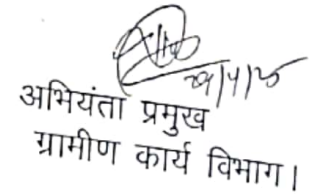 29/4/25
अभियंता प्रमुख
ग्रामीण कार्य विभाग।